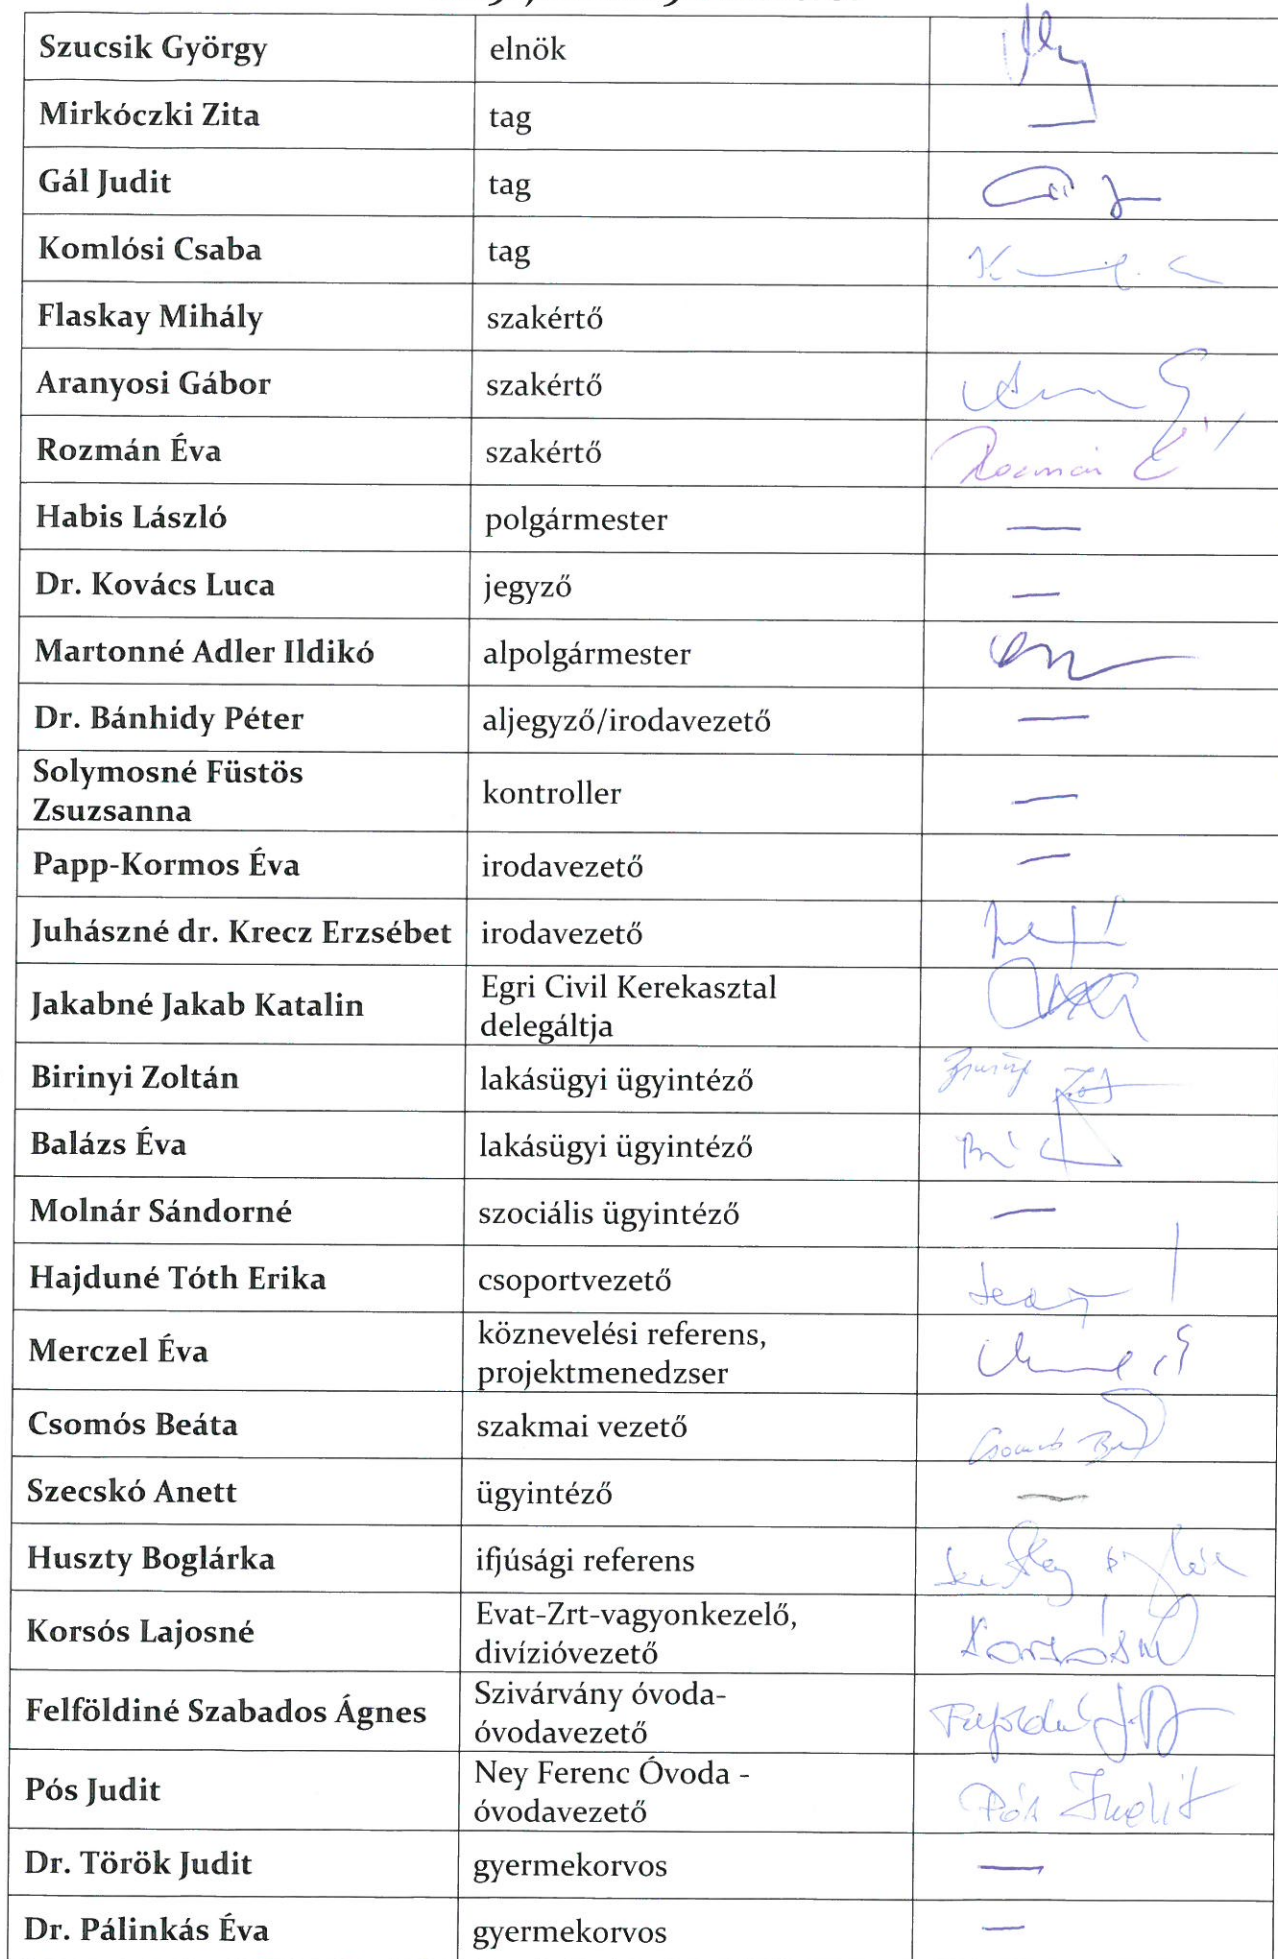 Szucsik György elnök
Mirkóczki Zita tag —
Gál Judit tag
Komlósi Csaba tag
Flaskay Mihály szakértő
Aranyosi Gábor szakértő
Rozmán Éva szakértő Rozmán É
Habis László polgármester —
Dr. Kovács Luca jegyző —
Martonné Adler Ildikó alpolgármester
Dr. Bánhidy Péter aljegyző/irodavezető —
Solymosné Füstös
Zsuzsanna kontroller —
Papp-Kormos Éva irodavezető —
Juhászné dr. Krecz Erzsébet irodavezető
Jakabné Jakab Katalin Egri Civil Kerekasztal
delegáltja
Birinyi Zoltán lakásügyi ügyintéző
Balázs Éva lakásügyi ügyintéző
Molnár Sándorné szociális ügyintéző —
Hajduné Tóth Erika csoportvezető
Merczel Éva köznevelési referens,
projektmenedzser
Csomós Beáta szakmai vezető
Szecskó Anett ügyintéző —
Huszty Boglárka ifjúsági referens
Korsós Lajosné Evat-Zrt-vagyonkezelő,
divízióvezető
Felföldiné Szabados Ágnes Szivárvány óvoda-
óvodavezető
Pós Judit Ney Ferenc Óvoda -
óvodavezető Pós Judit
Dr. Török Judit gyermekorvos —
Dr. Pálinkás Éva gyermekorvos —